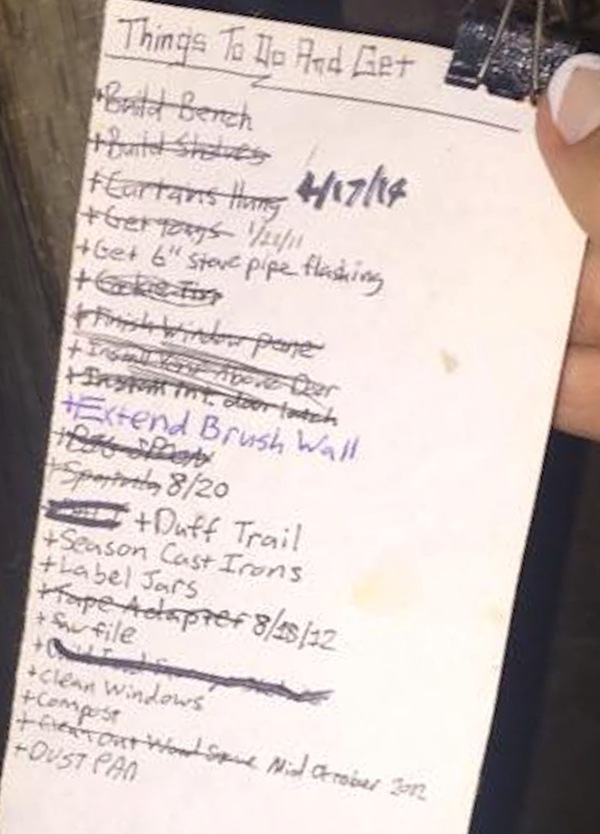 Things To Do And Get
+Build Bench
+Build Shelves
+Curtains Hung 4/17/14
+Get 1/21/11
+Get 6" stove pipe flashing
+Cookie Tin
+Finish Window pane
+Install Above Door
+Install door latch
+Extend Brush Wall
+
8/20
+Duff Trail
+Season Cast Irons
+Label Jars
+Tape Adapter 8/18/12
+Saw file
+
+Clean Windows
+Compost
+Clean Out Wood Stove Mid October 2012
+DUST PAN